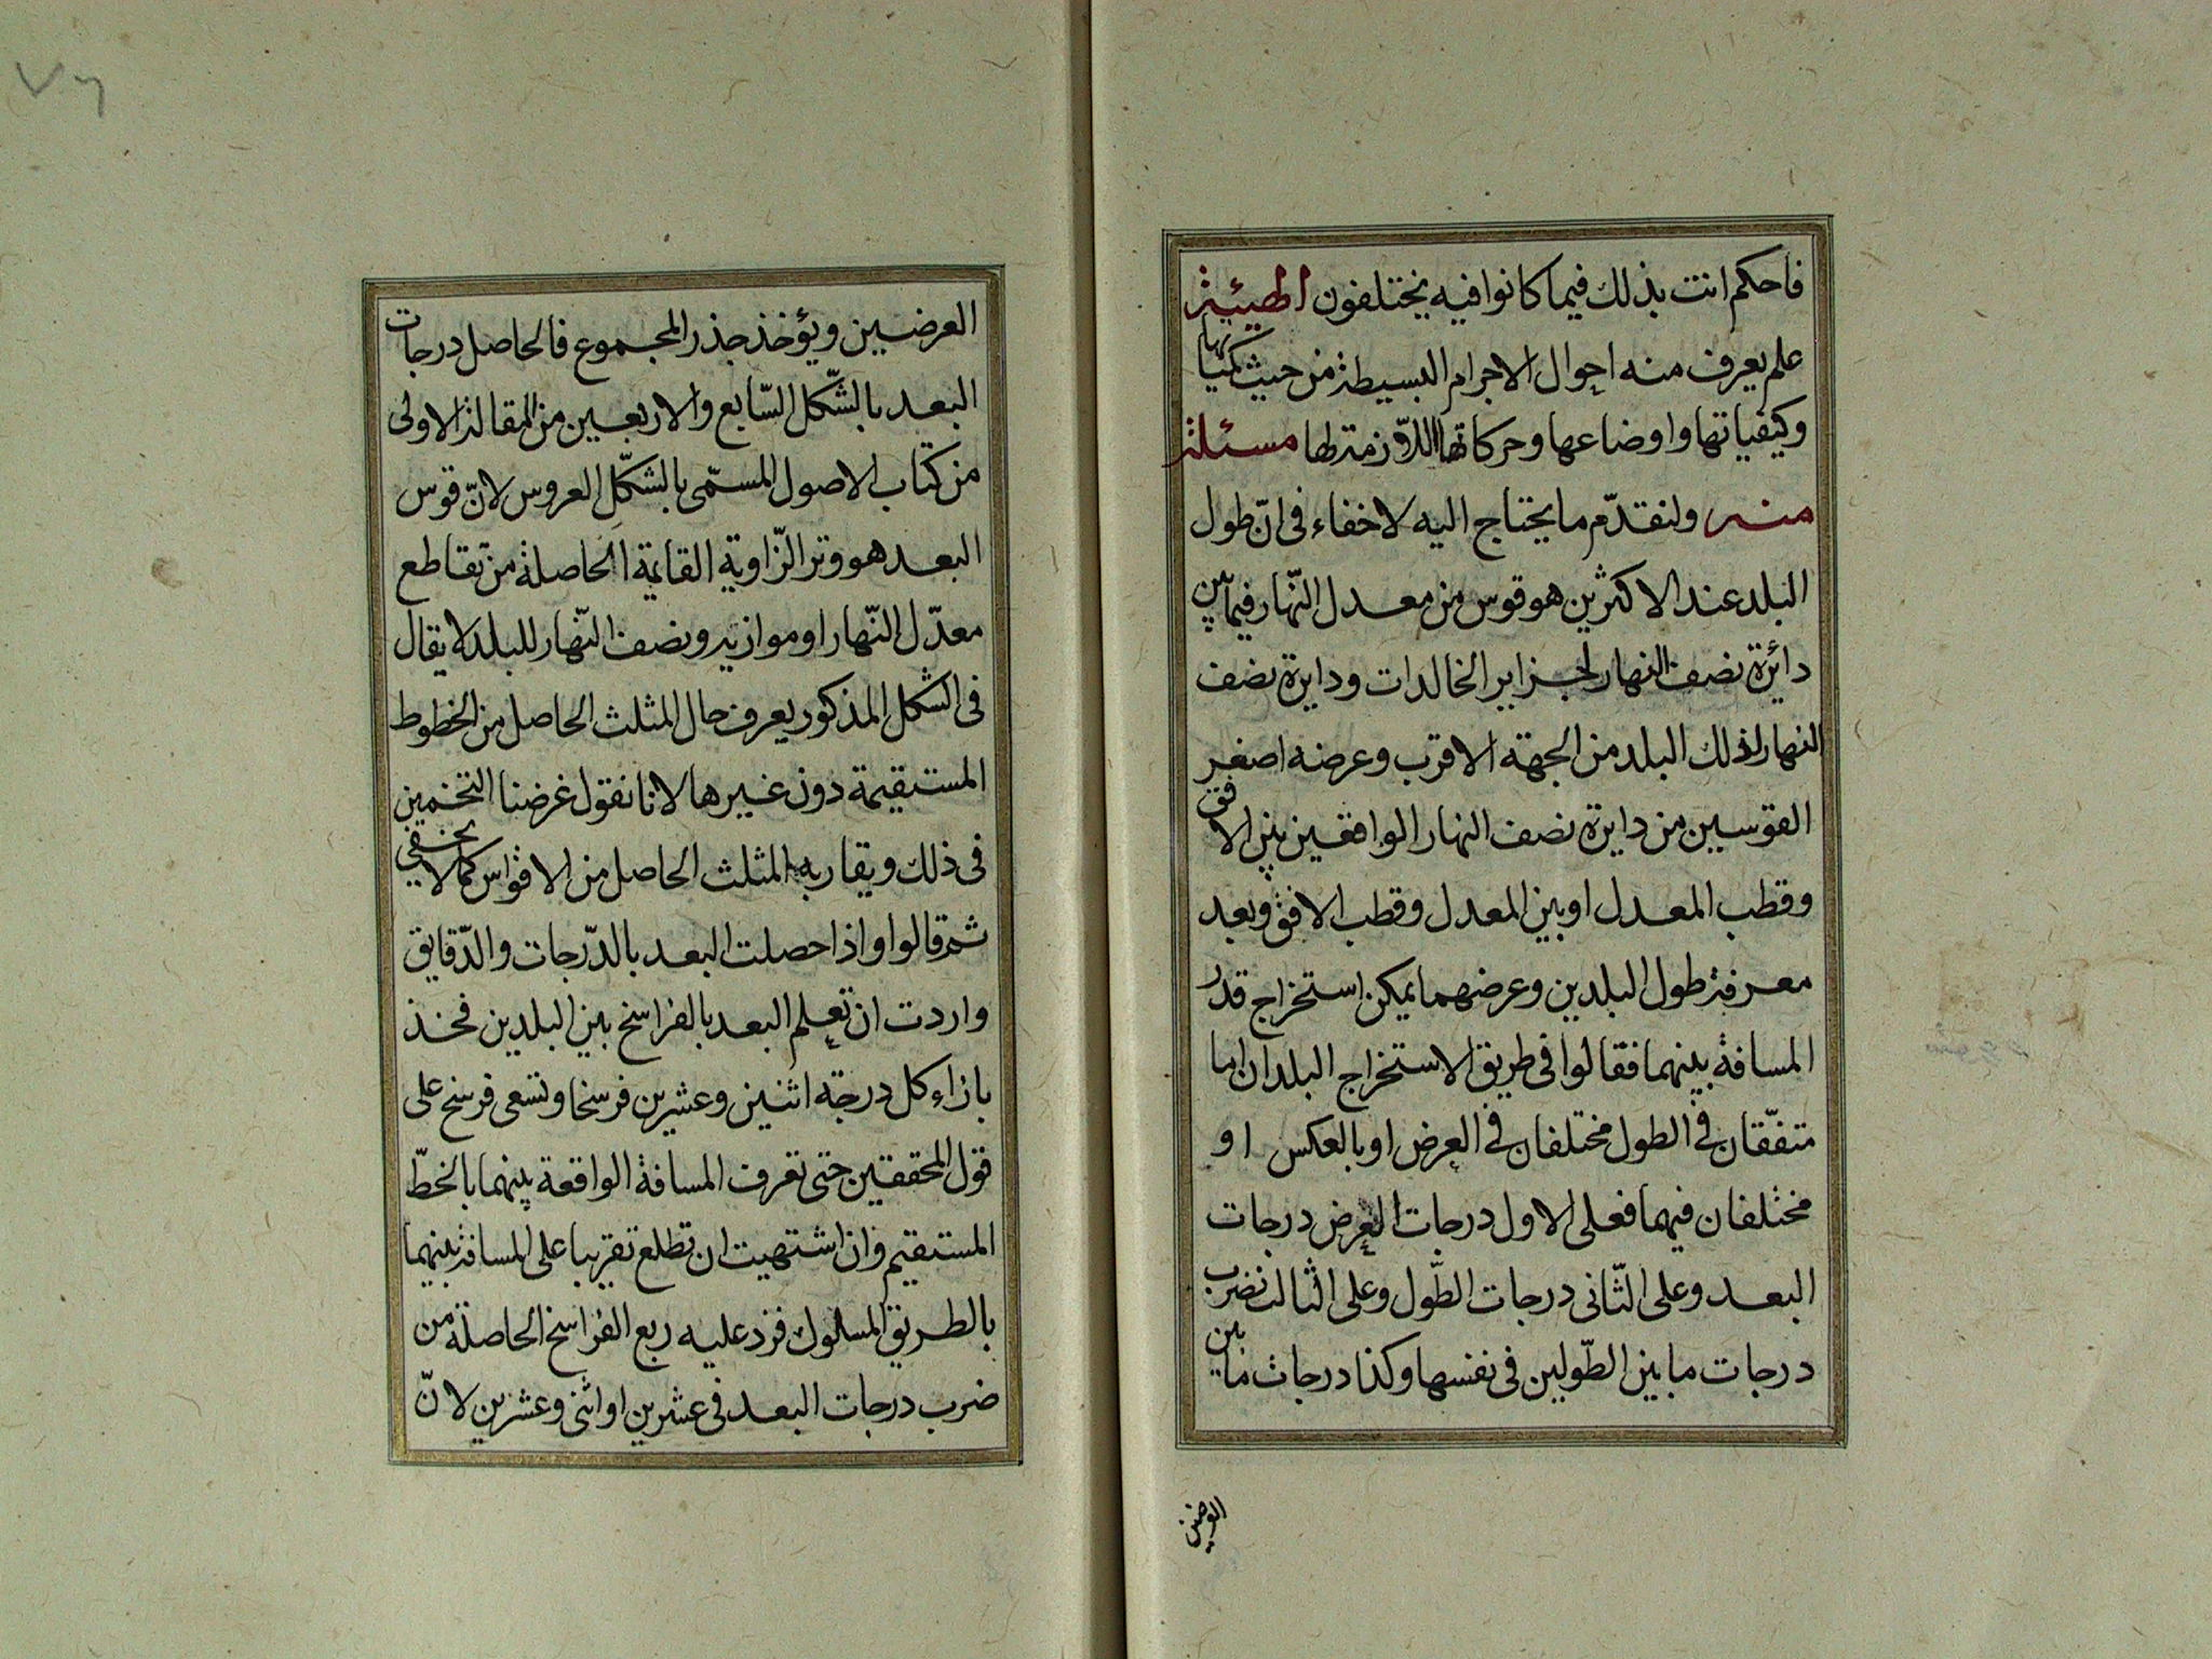 فاحكم انت بذلك فيما كانوا فيه يختلفون الهيئة
علم يعرف منه احوال الاجرام البسيطة من حيث كمياتها
وكيفياتها واوضاعها وحركاتها اللازمة لها مسئلة
منه ولنقدّم ما يحتاج اليه لا خفاء فى انّ طول
البلد عند الاكثرين هو قوس من معدل النّهار فيما بين
دائرة نصف النهار لجزاير الخالدات ودايرة نصف
النهار لذلك البلد من الجهة الاقرب وعرضه اصغر
القوسين من دايرة نصف النهار الواقعين بين الافق
وقطب المعدل او بين المعدل وقطب الافق وبعد
معرفة طول البلدين وعرضهما يمكن استخراج قدر
المسافة بينهما فقالوا فى طريق الاستخراج البلدان اما
متفّقان فى الطول مختلفان فى العرض او بالعكس او
مختلفان فيهما فعلى الاول درجات العرض درجات
البعد وعلى الثّانى درجات الطّول وعلى الثالث نضرب
درجات ما بين الطّولين فى نفسها وكذا درجات ما بين
العرضين
٧٦
العرضين ويؤخذ جذر المجموع فالحاصل درجات
البعد بالشّكل السّابع والاربعين من المقالة الاولى
من كتاب الاصول المسمّى بالشكل العروس لانّ قوس
البعد هو وتر الزّاوية القايمة الحاصلة من تقاطع
معدّل النّهار او موازيه ونصف النّهار للبلد لا يقال
فى الشكل المذكور يعرف حال المثلث الحاصل من الخطوط
المستقيمة دون غيرها لانا نقول غرضنا التخمين
فى ذلك ويقاربه المثلث الحاصل من الاقواس كما لا يخفى
ثم قالوا واذا حصلت البعد بالدّرجات والدّقايق
واردت ان تعلم البعد بالفراسخ بين البلدين فخذ
بازاء كل درجة اثنين وعشرين فرسخا وتسعى فرسخ على
قول المحققين حتى تعرف المسافة الواقعة بينهما بالخطّ
المستقيم وان اشتهيت ان تطلع تقريبا على المسافة بينهما
بالطريق المسلوك فزد عليه ربع الفراسخ الحاصلة من
ضرب درجات البعد فى عشرين او اثنى وعشرين لانّ